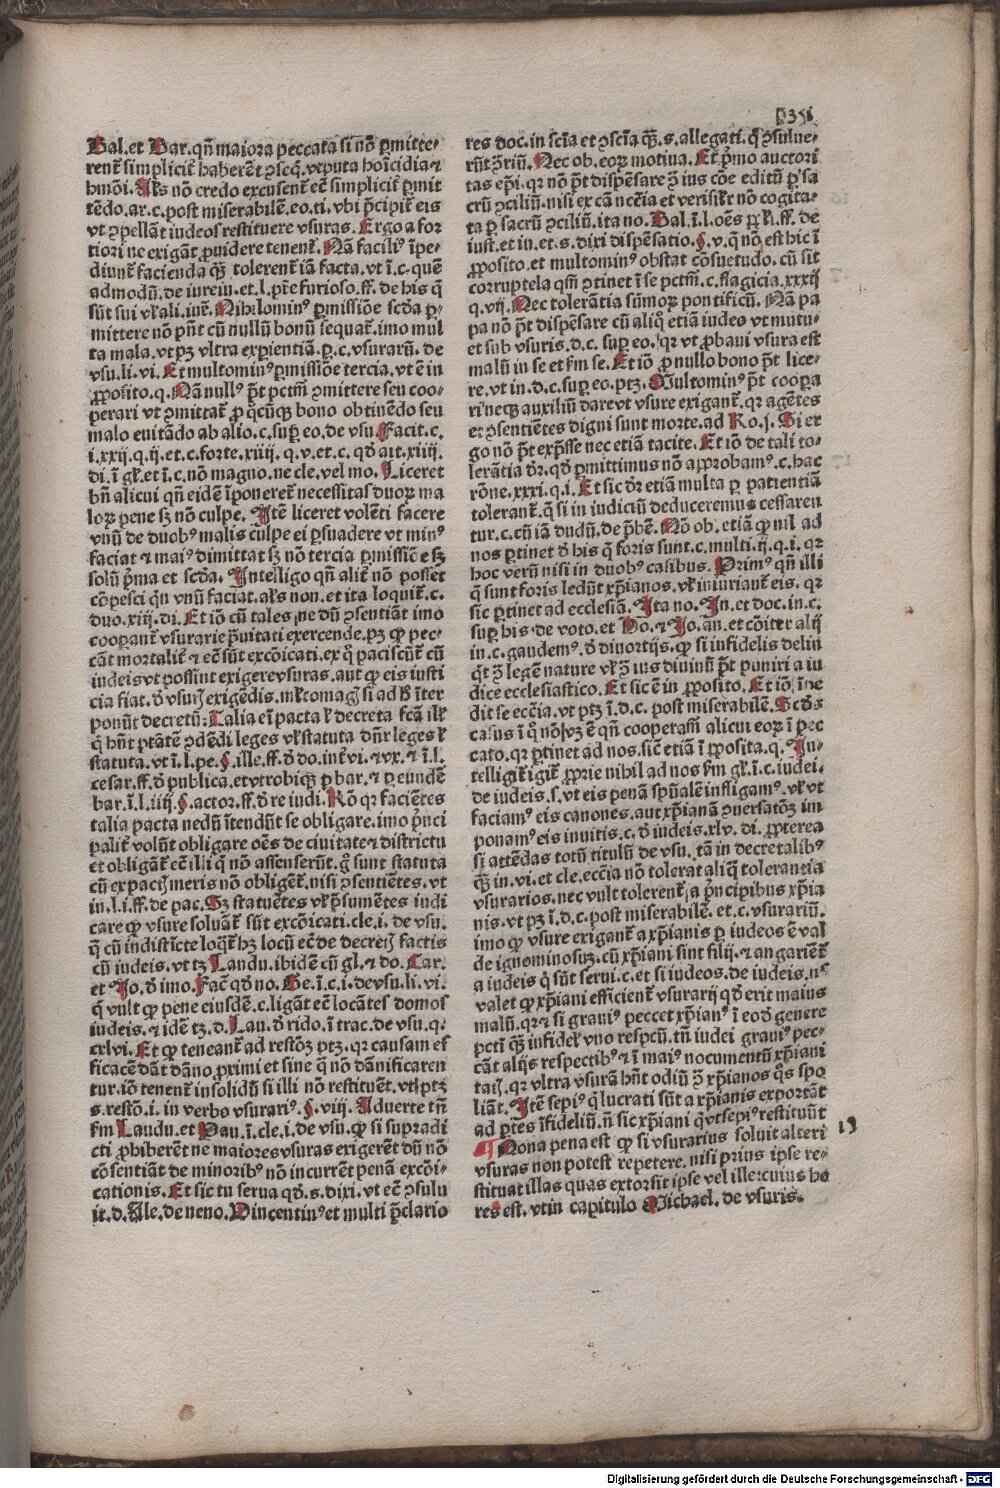 351
Bal. et Bar. qñ maiora peccata si nõ ꝑmitte-
renť simpliciť haberẽt ꝯseq̃. vtputa hoĩcidia ⁊
hmõi. Alṡ nõ credo excusenť eẽ simpliciť ꝑmit
tẽdo. ar. c. post miserabilẽ. eo. ti. vbi p̃cipiť eis
vt ꝯpellãt iudeos restituere vsuras. Ergo a for
tiori ne exigãt ꝓuidere tenenť. Nã faciliꝰ ĩpe-
diunť facienda qꝫ̃ tolerenť iã facta. vt ĩ. c. quẽ
admodũ. de iureiu. et. l. pr̃e furioso. ff. de his q̃
sũt sui vľ ali. iuř. Nihilominꝰ ꝑmissiõe scďa ꝑ-
mittere nõ pñt cũ nullũ bonũ sequať. imo mul
ta mala. vt ptꝫ vltra exꝑientiã. ꝑ. c. vsurarũ. de
vsu. li. vi. Et multominꝰ ꝑmissiõe tercia. vt ẽ in
ꝓposito. q. Nã nullꝰ p̃t pctm̃ ꝯmittere seu coo-
perari vt ꝯmittať ꝓ qͦcũqꝫ bono obtinẽdo seu
malo euitãdo ab alio. c. suꝑ eo. de vsu. Facit. c.
i. xxij. q. ij. et. c. forte. xiiij. q. v. et. c. qď ait. xiiij.
di. ĩ gľ. et ĩ. c. nõ magno. ne cle. vel mo. Liceret
bñ alicui qñ eidẽ ĩponereť necessitas duoꝝ ma
loꝝ pene sꝫ nõ culpe. Itẽ liceret volẽti facere
vnũ de duobꝰ malis culpe ei ꝑsuadere vt minꝰ
faciat ⁊ maiꝰ dimittat sꝫ nõ tercia ꝑmissiẽ e sꝫ
solũ p̃ma et scďa. Intelligo qñ aliť nõ posset
cõpesci qͥn vnũ faciat. alṡ non. et ita loquiť. c.
duo. xiij. di. Et iõ cũ tales ne dũ ꝯsentiãt imo
cooꝑanť vsurarie p̃uitati exercende. ptꝫ ꝙ pec-
cãt mortaliť ⁊ eẽ sũt excõicati. ex qͦ paciscũť cũ
iudeis vt possint exigere vsuras. aut ꝙ eis iusti
cia fiat. ď vsurꝭ exigẽdis. mľtomagꝭ si ad hͦ ĩter
ponũt decretũ: Talia eĩ pacta ľ decreta fcã illṡ
q̃ hñt ptãtẽ ꝯdẽdi leges vľ statuta dñr leges ľ
statuta. vt ĩ. l. pe. §. ille. ff. ď do. inť vi. ⁊ vx. ⁊ ĩ. l.
cesar. ff. ď publica. et vtrobiqꝫ ꝑ bar. ⁊ ꝑ eundẽ
bar. ĩ. l. iiij. §. actor. ff. ď re iudi. Rõ qꝛ faciẽtes
talia pacta nedũ ĩtendũt se obligare. imo p̃nci
paliť volũt obligare oẽs de ciuitate ⁊ districtu
et obligãť eẽ illi qͥ nõ assenserũt. qͥ sunt statuta
cũ ex pactꝭ meris nõ obligẽť. nisi ꝯsentiẽtes. vt
in. l. i. ff. de pac. Sꝫ statuẽtes vľ p̃sumẽtes iudi
care ꝙ vsure soluãť sũt excõicati. cle. i. de vsu.
q̃ cũ indistĩcte loqͣť hꝫ locũ eẽ de decretꝭ factis
cũ iudeis. vt tꝫ Laudu. ibidẽ cũ gl. ⁊ do. Car.
et Jo. ď imo. Fac̃ qď no. Ge. ĩ. c. i. de vsu. li. vi.
q̃ vult ꝙ pene eiusdẽ. c. ligãt eẽ locãtes domos
iudeis. ⁊ idẽ tꝫ. d. Lau. ď rido. ĩ trac. de vsu. q.
cxlvi. Et ꝙ teneanť ad restõꝫ ptꝫ. qꝛ causam ef
ficacẽ dãt dãno proximi et sine q̃ nõ dãnificaren
tur. iõ tenenť insolidũ si illi nõ restituẽt. vti ptꝫ
s. restõ. i. in verbo vsurariꝰ. §. viij. Aduerte tñ
fm Laudu. et Pau. ĩ. cle. i. de vsu. ꝙ si supradi
cti ꝓhiberẽt ne maiores vsuras exigerẽt dũ nõ
cõsentiãt de minoribꝰ nõ incurrẽt penã excõi-
cationis. Et sic tu serua qď. s. dixi. vt eẽ ꝯsulu
it. d. Ale. de neno. Vincentiꝰ et multi p̃clario
res doc. in scĩa et ꝯscĩa qꝫ̃. s. allegati. qͥ ꝯsulue-
rũt ꝯriũ. Nec ob. eoꝝ motiua. Et p̃mo auctori
tas epĩ. qꝛ nõ p̃t dispẽsare ꝯ ius cõe editũ ꝑ sa
crũ ꝯciliũ. nisi ex cã nccĩa et verisiľr nõ cogita-
ta ꝑ sacrũ ꝯciliũ. ita no. Bal. ĩ. l. oẽs ppľi. ff. de
iust. et in. et. s. dixi dispẽsatio. §. v. q̃ nõ est hic ĩ
ꝓposito. et multominꝰ obstat cõsuetudo. cũ sit
corruptela qm̃ ꝯtinet ĩ se pctm̃. c. flagicia. xxxij
q. vij. Nec tolerãtia sũmoꝝ pontificũ. Nã pa
pa nõ p̃t dispẽsare cũ aliqͦ etiã iudeo vt mutu-
et sub vsuris. d. c. suꝑ eo. qꝛ vt ꝓbaui vsura est
malũ in se et fm se. Et iõ ꝓ nullo bono p̃t lice-
re. vt in. d. c. suꝑ eo. ptꝫ. Multominꝰ p̃t cooꝑa
ri neqꝫ auxiliũ dare vt vsure exiganť. qꝛ agẽtes
et ꝯsentiẽtes digni sunt morte. ad Ro. j. Si er
go nõ p̃t exp̃sse nec etiã tacite. Et iõ de tali to-
lerãtia dr̃. qď ꝑmittimus nõ approbamꝰ. c. hac
rõne. xxxi. q. i. Et sic dr̃ etiã multa ꝑ patientiã
toleranť. q̃ si in iudiciũ deduceremus cessaren
tur. c. cũ iã dudũ. de p̃bẽ. Nõ ob. etiã ꝙ nil ad
nos ꝑtinet ď his q̃ foris sunt. c. multi. ij. q. i. qꝛ
hoc verũ nisi in duobꝰ casibus. Primꝰ qñ illi
q̃ sunt foris ledũt xp̃ianos. vľ iniurianť eis. qꝛ
sic ꝑtinet ad ecclesiã. Ita no. In. et doc. in. c.
suꝑ his. de voto. et Ho. ⁊ Jo. an. et cõiter alij
in. c. gaudemꝰ. ď diuortijs. ꝙ si infidelis delin
qͣt ꝯ legẽ nature vľ ꝯ ius diuinũ p̃t puniri a iu
dice ecclesiastico. Et sic ẽ in ꝓposito. Et iõ ĩpe
dit se ecc̃ia. vt ptꝫ ĩ. d. c. post miserabilẽ. Scďs
casus ĩ qͦ nõ hꝫ ẽ qñ cooperam̃ alicui eoꝝ ĩ pec
cato. qꝛ ꝑtinet ad nos. sic̃ etiã ĩ ꝓposita. q. In-
telligiť igiť ꝓprie nihil ad nos fm gľ. ĩ. c. iudei.
de iudeis. s. vt eis penã spũalẽ infligamꝰ. vľ vt
faciamꝰ eis canones. aut xp̃ianã ꝯuersatõꝫ im
ponamꝰ eis inuitis. c. ď iudeis. xlv. di. ꝓpterea
si attẽdas totũ titulũ de vsu. tã in decretalibꝰ
qꝫ̃ in. vi. et cle. ecc̃ia nõ tolerat aliq̃ tolerantia
vsurarios. nec vult tolerenť a p̃ncipibus xp̃ia
nis. vt ptꝫ ĩ. d. c. post miserabilẽ. et. c. vsurariũ.
imo ꝙ vsure exiganť a xp̃ianis ꝑ iudeos ẽ val
de ignominosuꝫ. cũ xp̃iani sint filij. ⁊ angariẽť
a iudeis qͥ sũt serui. c. et si iudeos. de iudeis. nͨ
valet ꝙ xp̃iani efficienť vsurarij qď erit maius
malũ. qꝛ ⁊ si grauiꝰ peccet xp̃ianꝰ ĩ eoď genere
pcti qꝫ̃ infideľ vno respcũ. tñ iudei grauiꝰ pec-
cãt alijs respectibꝰ ⁊ ĩ maiꝰ nocumentũ xp̃iani
tatꝭ. qꝛ vltra vsurã hñt odiũ ꝯ xp̃ianos qͦs spo
liãt. Itẽ sepiꝰ q̃ lucrati sũt a xp̃ianis exportãt
ad ꝑtes ĩfideliũ. ñ sic xp̃iani qͥ vt sepiꝰ restituũt
¶ Nona pena est ꝙ si vsurarius soluit alteri
vsuras non potest repetere. nisi prius ipse re-
stituat illas quas extorsit ipse vel ille cuius he
res est. vt in capitulo Michael. de vsuris.
13
Digitalisierung gefördert durch die Deutsche Forschungsgemeinschaft - DFG